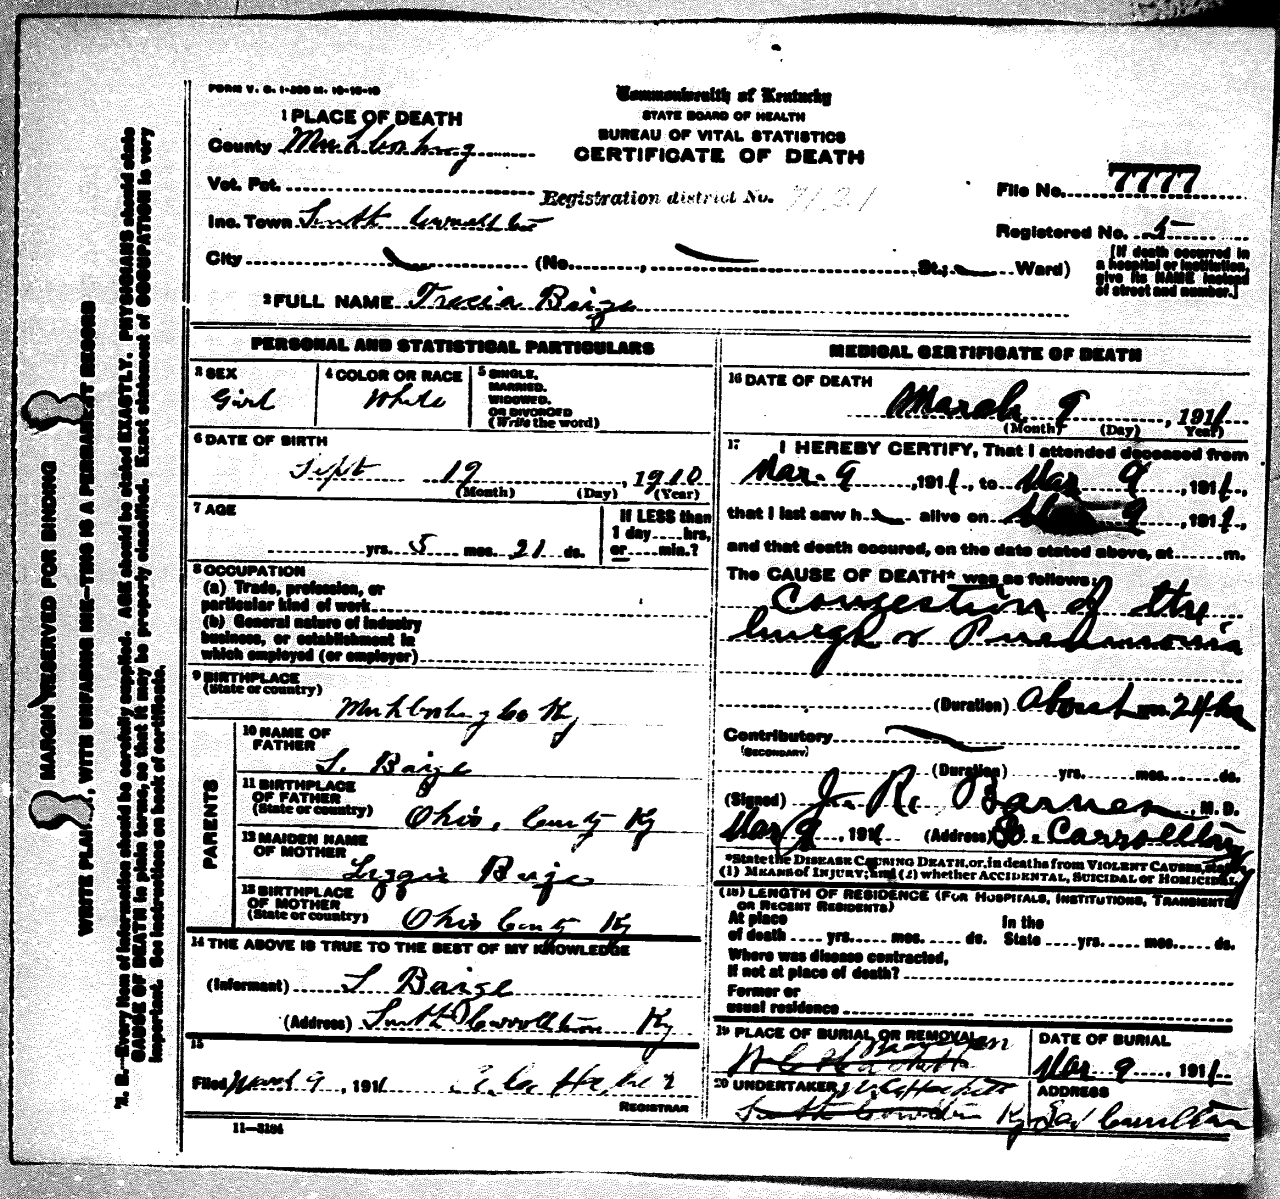 FORM V. S. 1-200 M. 10-18-10
Commonwealth of Kentucky
STATE BOARD OF HEALTH
BUREAU OF VITAL STATISTICS
CERTIFICATE OF DEATH
1 PLACE OF DEATH
County
Vot. Pct.
Registration district No. 7121
File No. 7777
Inc. Town South Carrollton
Registered No. 5
City (No. , St.; Ward)
[If death occurred in
a hospital or institution,
give its NAME instead
of street and number.]
2 FULL NAME Tracia Baize
PERSONAL AND STATISTICAL PARTICULARS
3 SEX
Girl
4 COLOR OR RACE
White
5 SINGLE,
MARRIED,
WIDOWED,
OR DIVORCED
(Write the word)
6 DATE OF BIRTH
Sept 19, 1910
(Month) (Day) (Year)
7 AGE
yrs. 5 mos. 21 ds.
If LESS than
1 day hrs,
or min.?
8 OCCUPATION
(a) Trade, profession, or
particular kind of work
(b) General nature of industry
business, or establishment in
which employed (or employer)
9 BIRTHPLACE
(State or country)
Co Ky
PARENTS
10 NAME OF
FATHER
Baize
11 BIRTHPLACE
OF FATHER
(State or country)
Ohio, County Ky
12 MAIDEN NAME
OF MOTHER
Lizzie Baize
13 BIRTHPLACE
OF MOTHER
(State or country)
Ohio County Ky
14 THE ABOVE IS TRUE TO THE BEST OF MY KNOWLEDGE
(Informant) Baize
(Address) South Carrollton Ky
15
Filed March 9, 1911
REGISTRAR
11-3184
MEDICAL CERTIFICATE OF DEATH
16 DATE OF DEATH
March 9, 1911
(Month) (Day) Year)
17 I HEREBY CERTIFY, That I attended deceased from
Mar. 9, 1911, to Mar 9, 1911,
that I last saw h alive on 9, 1911,
and that death occured, on the date stated above, at m.
The CAUSE OF DEATH* was as follows:
Congestion of the
lungs & Pneumonia
(Duration) About 24 hrs
Contributory
(SECONDARY)
(Duration) yrs. mos. ds.
(Signed) J. R. Barnes, M. D.
Mar 9, 1911 (Address) So. Carrollton Ky
*State the DISEASE CAUSING DEATH, or, in deaths from VIOLENT CAUSES,
(1) MEANS OF INJURY; and (2) whether ACCIDENTAL, SUICIDAL or HOMICIDAL
(18) LENGTH OF RESIDENCE (FOR HOSPITALS, INSTITUTIONS, TRANSIENTS
OR RECENT RESIDENTS)
At place
of death yrs. mos. ds.
In the
State yrs. mos. ds.
Where was disease contracted,
If not at place of death?
Former or
usual residence
19 PLACE OF BURIAL OR REMOVAL
DATE OF BURIAL
Mar 9, 1911
20 UNDERTAKER
ADDRESS
So. Carrollton
MARGIN RESERVED FOR BINDING
WRITE PLAINLY, WITH UNFADING INK—THIS IS A PERMANENT RECORD
N. B.—Every item of information should be carefully supplied. AGE should be stated EXACTLY. PHYSICIANS should state
CAUSE OF DEATH in plain terms, so that it may be properly classified. Exact statement of OCCUPATION is very
important. See instructions on back of certificate.